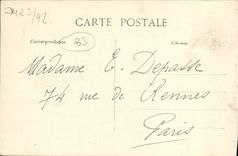 CARTE POSTALE
Correspondance
Adresse
83
Madame E. Depasse
74 rue de Rennes
Paris